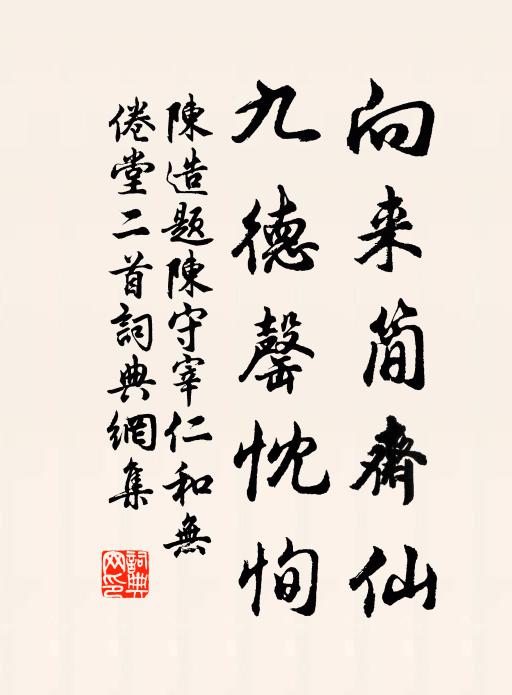 向来简齋仙
九德罄忱恂
陳造題陳守宰仁和無
倦堂二首詞典網集
詞典網印